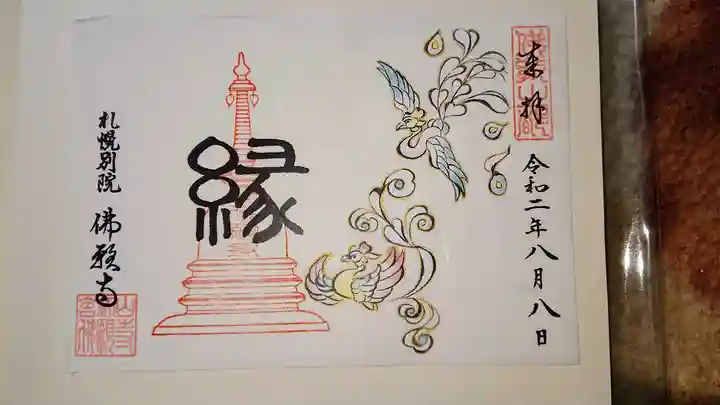 来拝
令和二年八月八日
縁
札幌別院 佛願寺